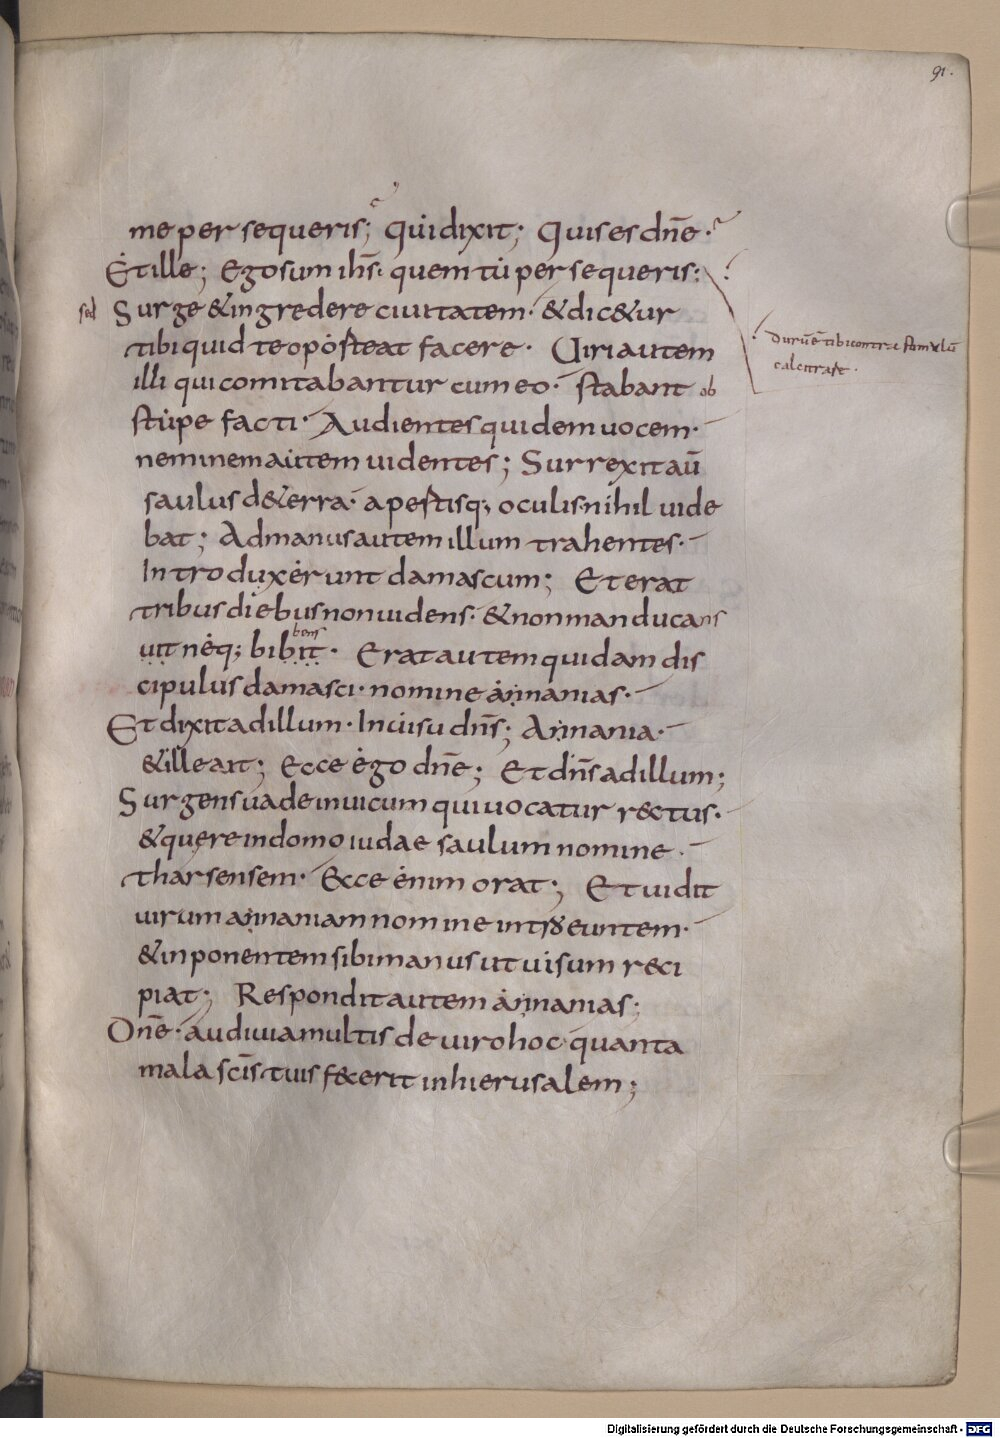 91.
me persequeris; Qui dixit; Quis es dn̄e·
Et ille; Ego sum ih̄s· quem tu persequeris:
sed Surge & ingredere ciuitatem· & dic&ur
durū ē tibi contra stimulū
calcitrare·
tibi quid te oporteat facere· Uiri autem
illi qui comitabantur cum eo· stabant ob
stupefacti· Audientes quidem uocem·
neminem autem uidentes; Surrexit aū
saulus de terra· apertisq; oculis nihil uide
bat; Ad manus autem illum trahentes·
Introduxerunt damascum; Et erat
tribus diebus non uidens· & non manducans
uit neq; bibit bens· Erat autem quidam dis
cipulus damasci· nomine annanias·
Et dixit ad illum· In uisu dn̄s; Annania·
& ille ait; Ecce ego dn̄e; Et dn̄s ad illum;
Surgens uade in uicum qui uocatur rectus·
& quere in domo iudae saulum nomine·
tharsensem· Ecce enim orat; Et uidit
uirum annaniam nomine introeuntem·
& inponentem sibi manus ut uisum reci
piat; Respondit autem annanias;
Dn̄e· audiui a multis de uiro hoc quanta
mala sc̄is tuis fecerit in hierusalem;
Digitalisierung gefördert durch die Deutsche Forschungsgemeinschaft - DFG